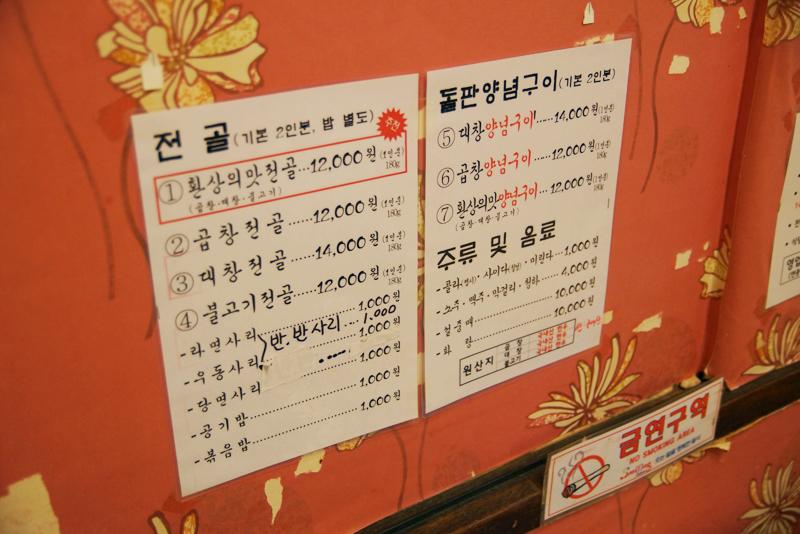 전 골 (기본 2인분, 밥 별도)
추천
① 환상의맛전골 ··· 12,000원 (1인분) 180g
(곱창·대창·불고기)
② 곱창전골 ······ 12,000원 (1인분) 180g
③ 대창전골 ······ 14,000원 (1인분) 180g
④ 불고기전골 ··· 12,000원 (1인분) 180g
- 라면사리 1,000원
반.반사리 ... 1.000
- 우동사리 1,000원
- 당면사리 1,000원
- 공기밥 1,000원
- 볶음밥 1,000원
돌판양념구이 (기본 2인분)
⑤ 대창양념구이 ······ 14,000원 (1인분) 180g
⑥ 곱창양념구이 ······ 12,000원 (1인분) 180g
⑦ 환상의맛양념구이 ··· 12,000원 (1인분) 180g
(곱창·대창·불고기)
주류 및 음료
- 콜라 · 사이다 · 미린다 ··· 1,000원
- 소주 · 맥주 · 막걸리 · 청하 4,000원
- 설중매 10,000원
- 화 랑 10,000원
원산지
곱 창
대 창
불고기
금연구역
NO SMOKING AREA